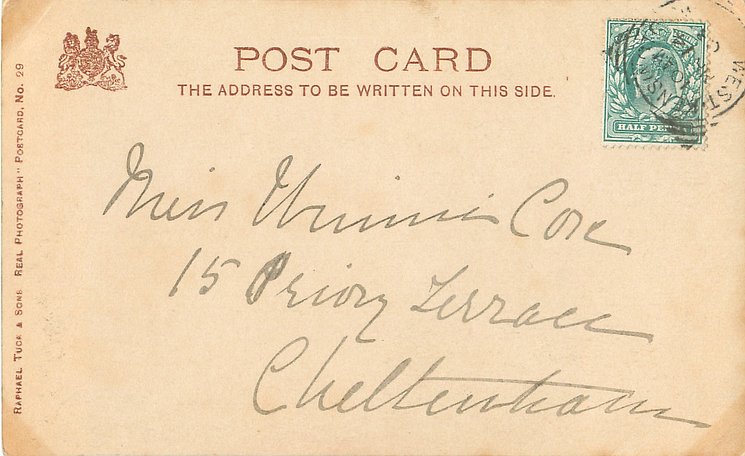 POST CARD
THE ADDRESS TO BE WRITTEN ON THIS SIDE.
HALF PEN
WEST
Miss Winnie Core
15 Priory Terrace
Cheltenham
RAPHAEL TUCK & SONS "REAL PHOTOGRAPH" POSTCARD. No. 29